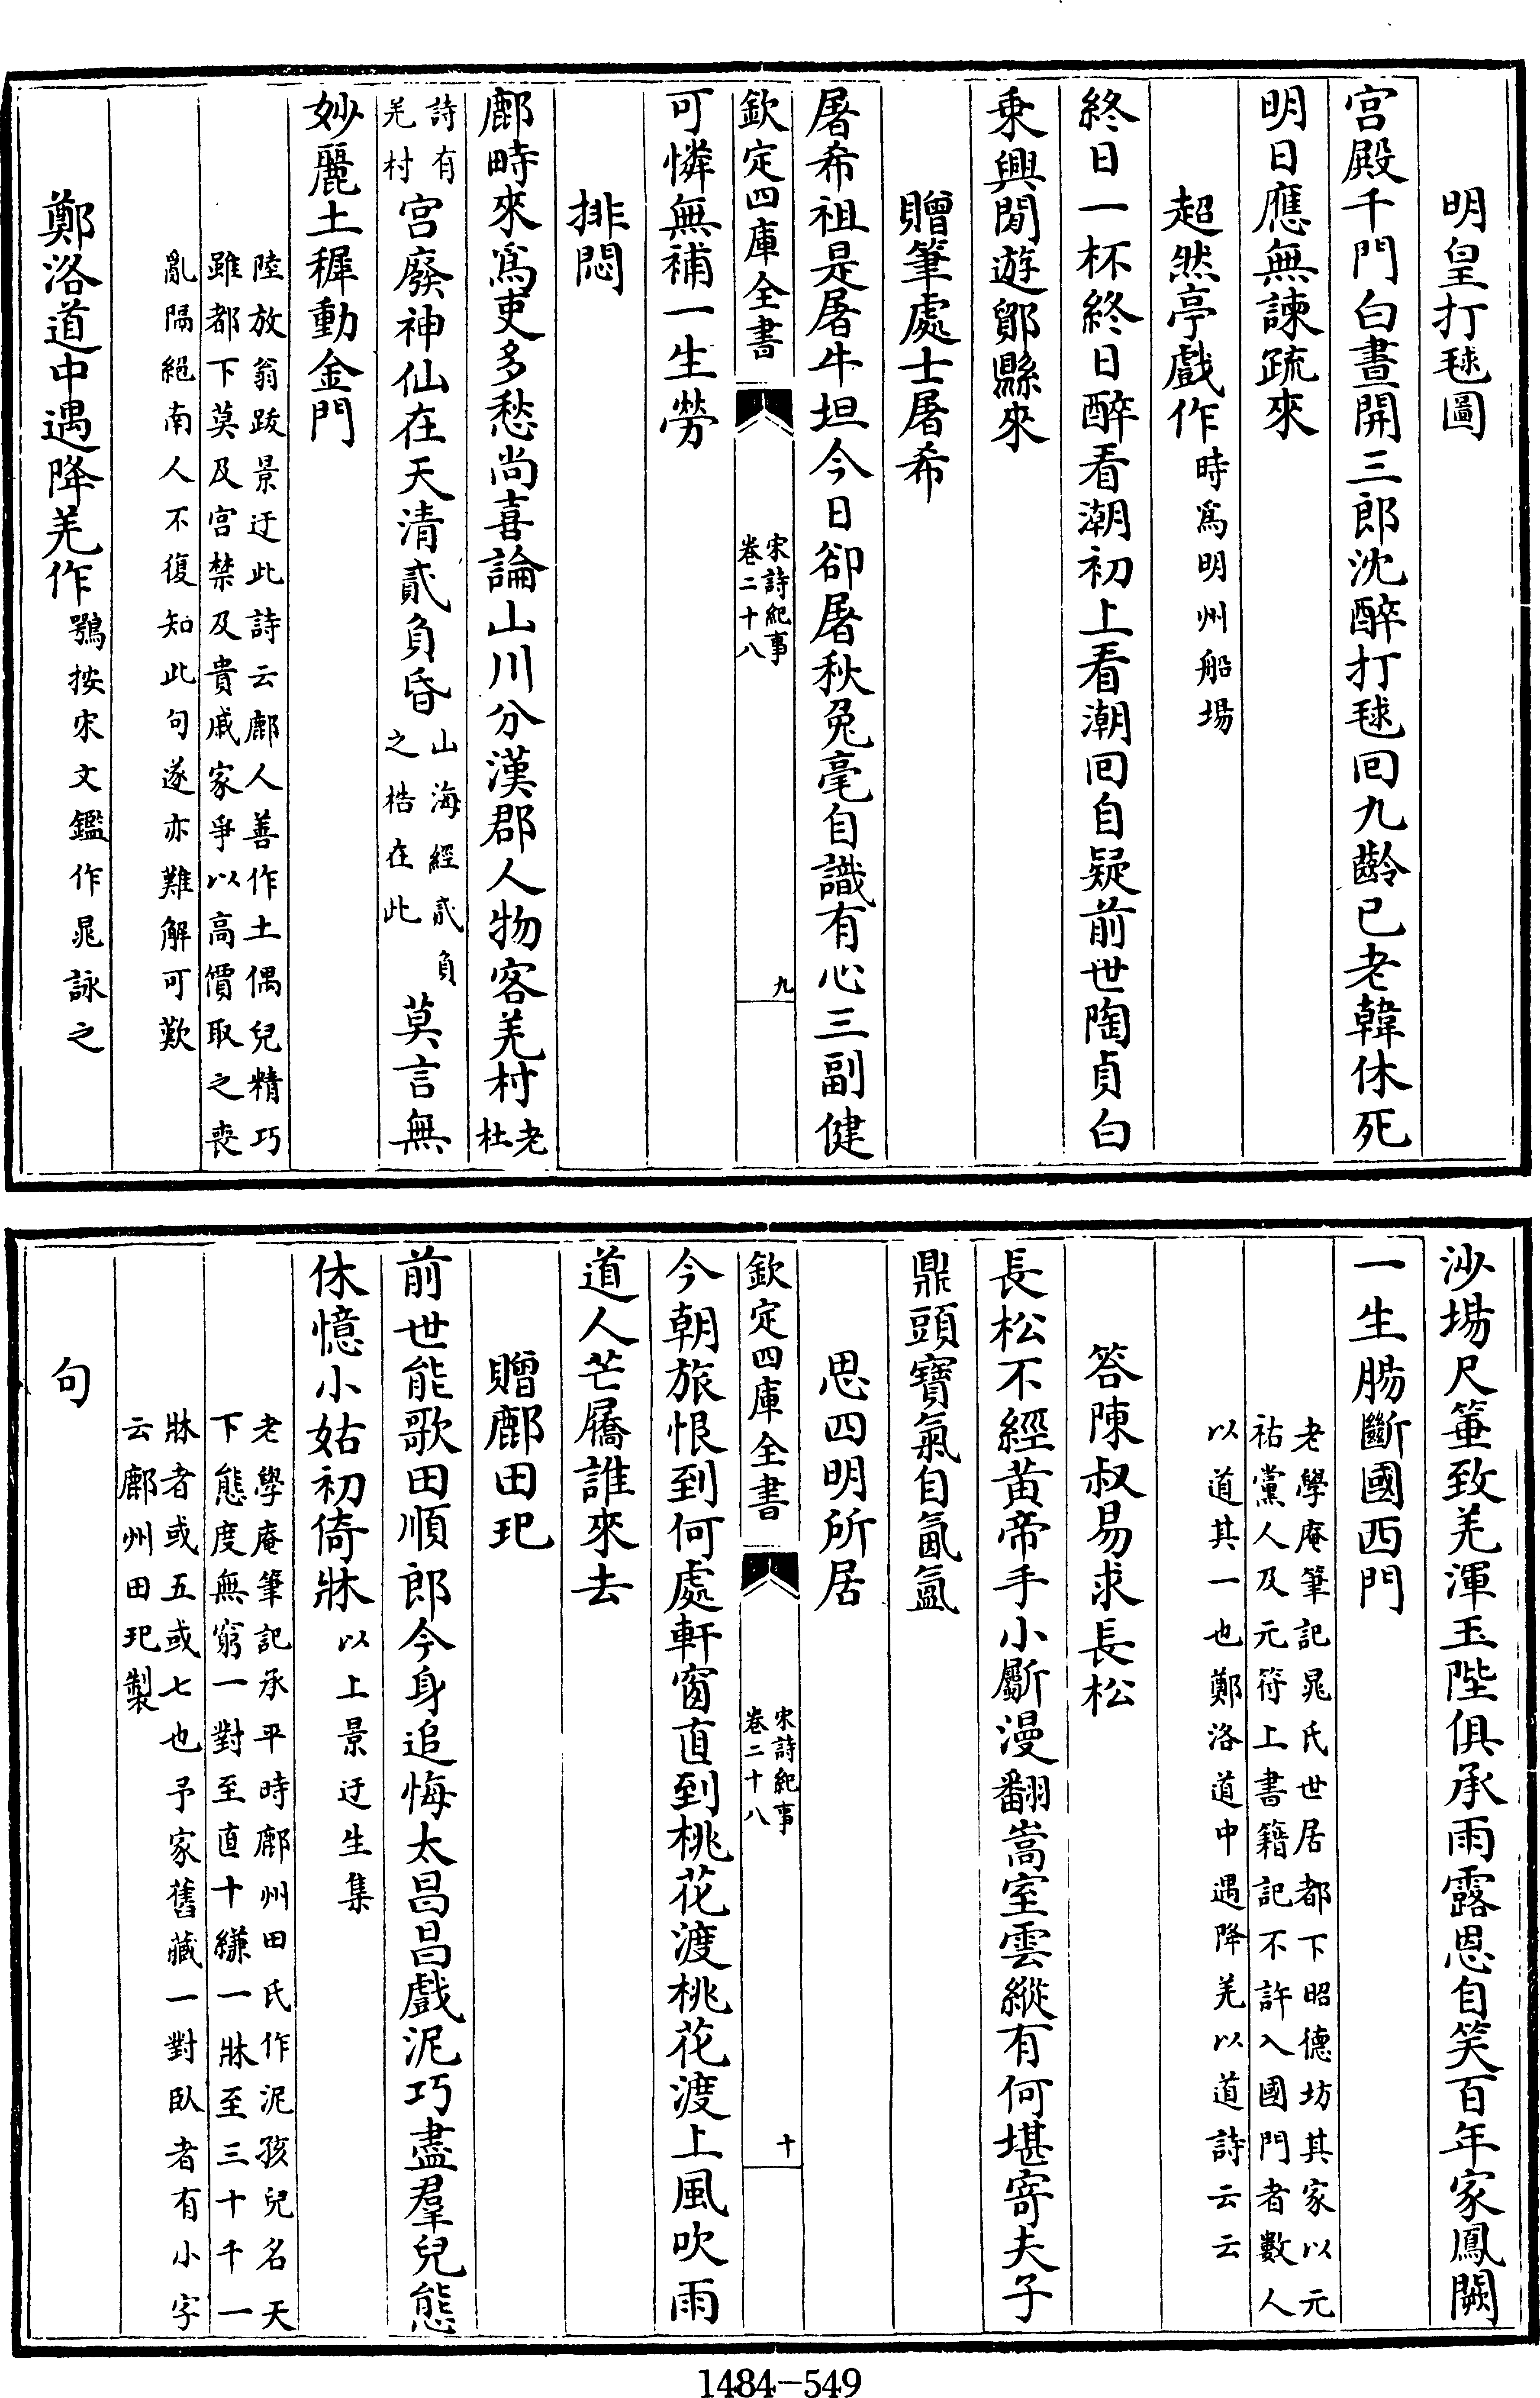 明皇打毬圖
宫殿千門白晝開三郎沈醉打毬回九齡已老韓休死
明日應無諫疏來
超然亭戲作時爲明州船塲
終日一杯終日醉看潮初上看潮回自疑前世陶貞白
乗興閒遊鄮縣來
贈筆處士屠希
屠希祖是屠牛坦今日卻屠秋兔毫自識有心三副健
欽定四庫全書
宋詩紀事
卷二十八
九
可憐無補一生勞
排悶
鄜畤來爲吏多愁尚喜論山川分漢郡人物客羌村老
杜
詩有
羌村
宫廢神仙在天清貳負昏
山海經貳負
之梏在此
莫言無
妙麗土穉動金門
陸放翁跋景迂此詩云鄜人善作土偶兒精巧
雖都下莫及宫禁及貴戚家爭以高價取之喪
亂隔絕南人不復知此句遂亦難解可歎
鄭洛道中遇降羌作鶚按宋文鑑作晁詠之
沙塲尺箠致羌渾玉陛俱承雨露恩自笑百年家鳳闕
一生腸斷國西門
老學庵筆記晁氏世居都下昭德坊其家以元
祐黨人及元符上書籍記不許入國門者數人
以道其一也鄭洛道中遇降羌以道詩云云
答陳叔易求長松
長松不經黄帝手小斸漫翻嵩室雲縱有何堪寄夫子
鼎頭寶氣自氤氳
思四明所居
欽定四庫全書
宋詩紀事
卷二十八
十
今朝旅恨到何處軒窗直到桃花渡桃花渡上風吹雨
道人芒屩誰來去
贈鄜田玘
前世能歌田順郎今身追悔太昌昌戲泥巧盡羣兒態
休憶小姑初倚牀以上景迂生集
老學庵筆記承平時鄜州田氏作泥孩兒名天
下態度無窮一對至直十縑一牀至三十千一
牀者或五或七也予家舊藏一對臥者有小字
云鄜州田玘製
句
1484-549